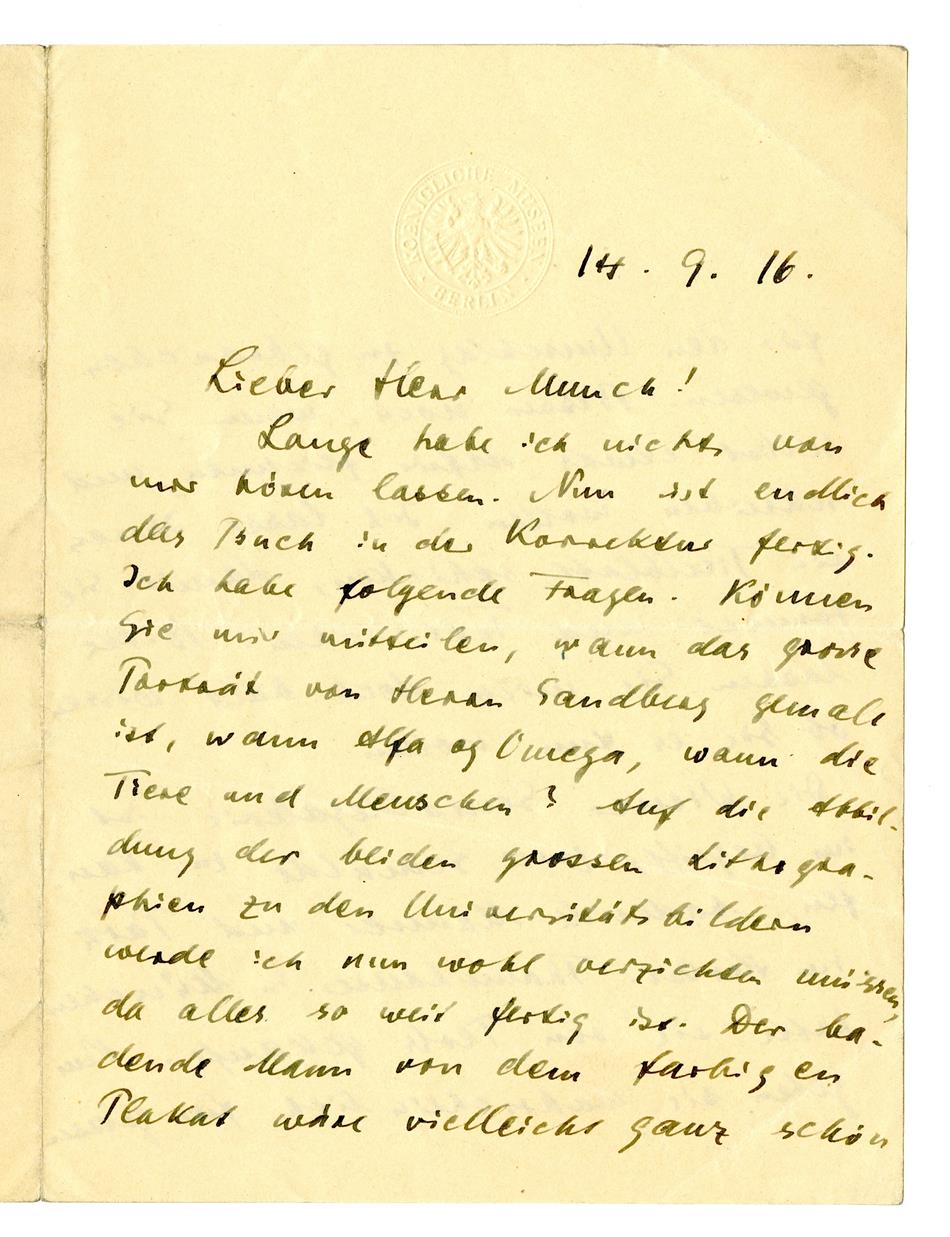 KOENIGLICHE MUSEEN
BERLIN
14. 9. 16.
Lieber Herr Munch!
Lange habe ich nichts von
mir hören lassen. Nun ist endlich
das Buch in der Korrektur fertig.
Ich habe folgende Fragen. Können
Sie mir mitteilen, wann das grosse
Porträt von Herrn Sandberg gemalt
ist, wann Alfa og Omega, wann die
Tiere und Menschen? Auf die Abbil-
dung der beiden grossen Lithogra-
phien zu den Universitätsbildern
werde ich nun wohl verzichten müssen,
da alles so weit fertig ist. Der ba-
dende Mann von dem farbigen
Plakat wäre vielleicht ganz schön